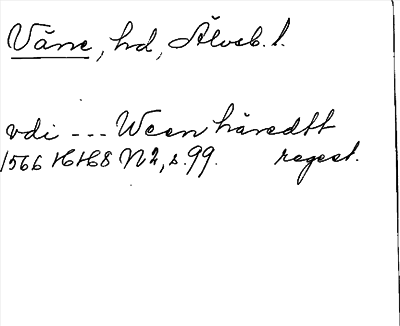 Väne, hd, Älvsb. l.
vdi --- Ween häredtt
1566 HH8 N2, s. 99. regest.